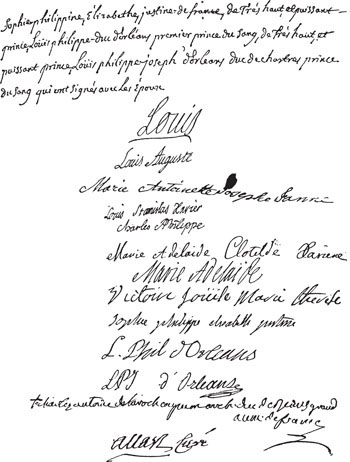 Sophie philippine, Elizabethe, justine de france, de Très haut et puissant
prince, Louis philippe duc d'orléans premier prince du Sang, de Très haut, et
puissant prince, Louis philippe joseph d'orleans duc de chartres prince
du sang qui ont signés avec les époux
Louis
Louis Auguste
Marie Antoinette Josepha Jeanne
Louis Stanislas Xavier
Charles Philippe
Marie Adelaide Clotilde Xaviere
Marie Adelaide
Victoire Louise Marie Therese
Sophie philippe elisabeth justine
L. Phil d'Orleans
LPJ d'Orleans
+ ch. antoine de la roche aymon arch. duc de grand
aum. de france
allart Curé